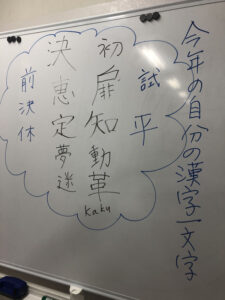 今年の自分の漢字一文字
試平
初扉知動革
kaku
決恵定夢迷
前決休